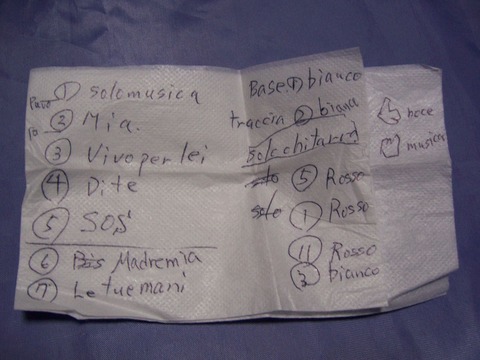 ① solo musica
② Mia.
③ Vivo per lei
④ Di te
⑤ SOS
⑥ Bis Madremia
⑦ Le tue mani
Base ① bianco
traccia ② bianco
solo chitarra
solo ⑤ Rosso
solo ① Rosso
⑪ Rosso
③ bianco
musica